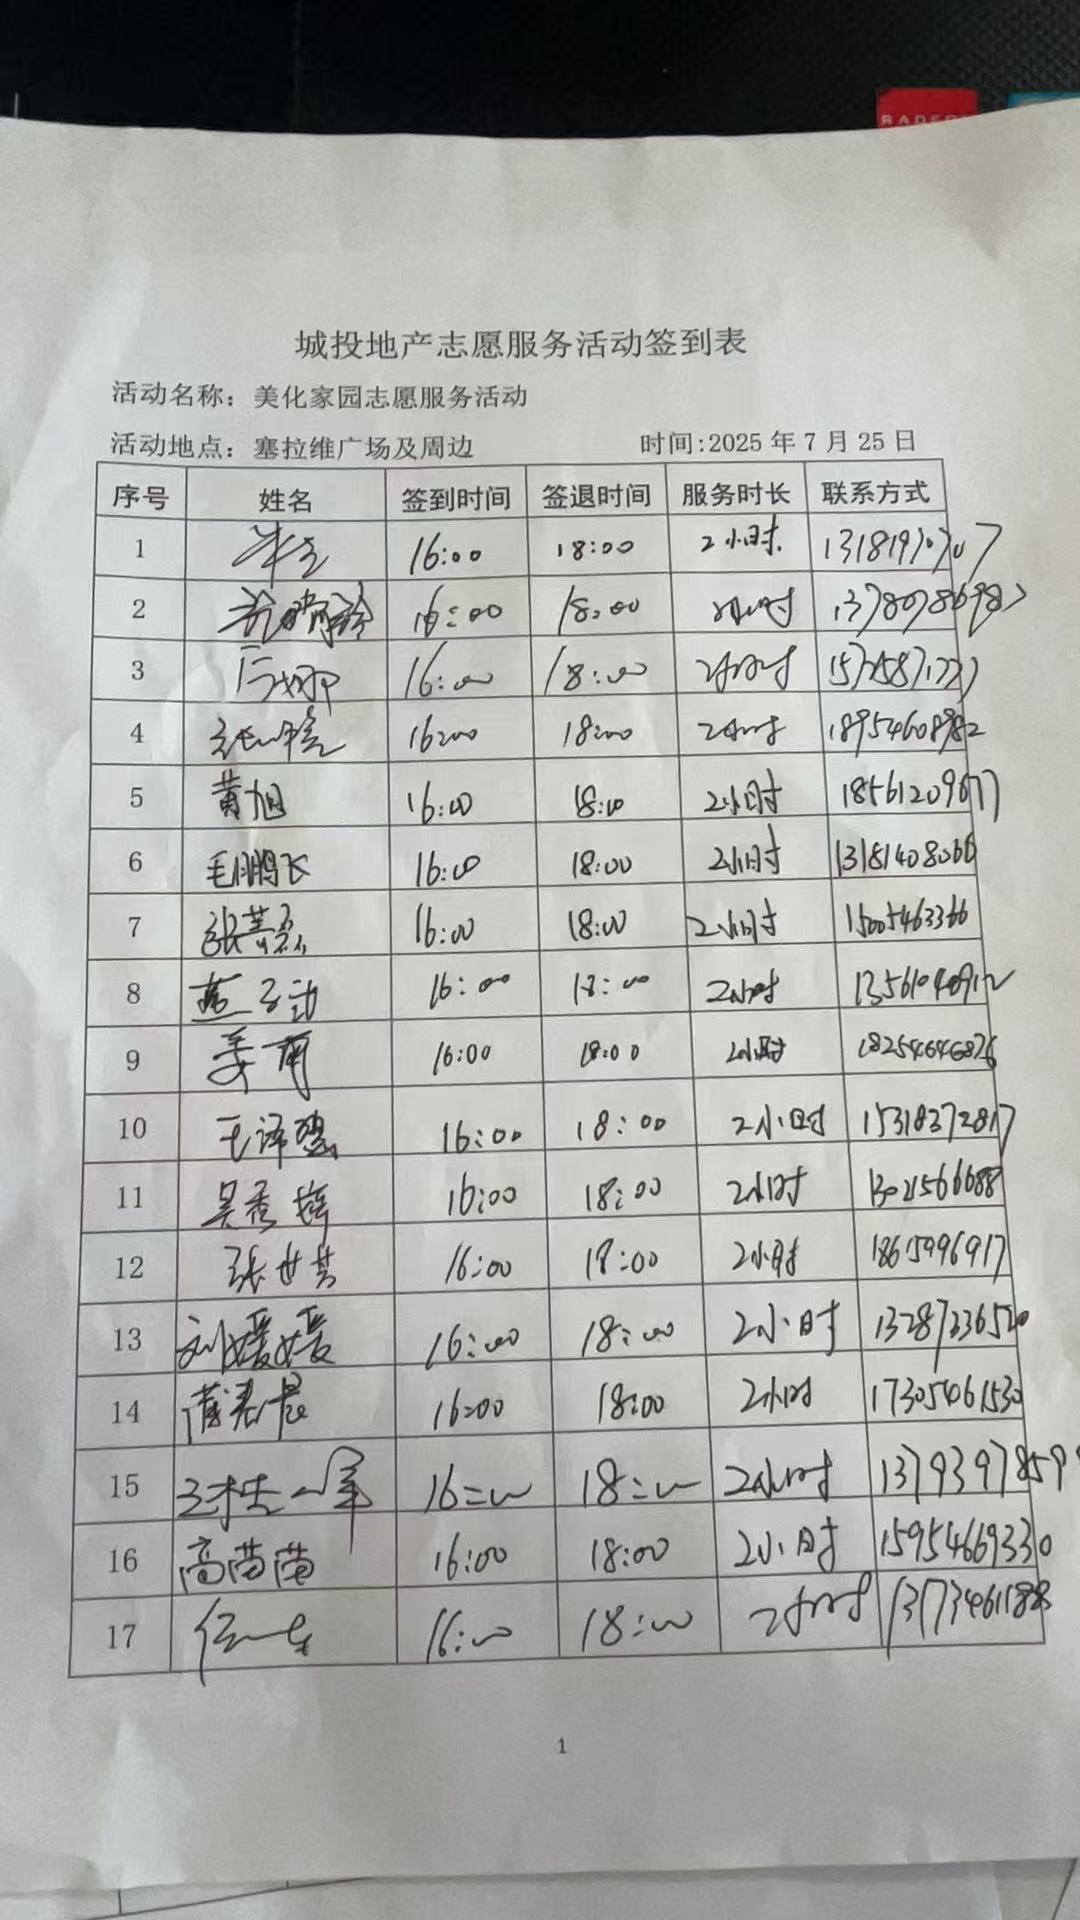 城投地产志愿服务活动签到表
活动名称：美化家园志愿服务活动
活动地点：塞拉维广场及周边 时间:2025 年 7 月 25 日
序号 姓名 签到时间 签退时间 服务时长 联系方式
1 16:00 18:00 2小时
2 16:00 18:00 2小时
3 16:00 18:00 2小时
4 16:00 18:00 2小时 18954608982
5 黄旭 16:00 18:00 2小时 18561209677
6 毛鹏飞 16:00 18:00 2小时 13181408066
7 16:00 18:00 2小时 15005463366
8 16:00 18:00 2小时
9 16:00 18:00 2小时 18254646826
10 16:00 18:00 2小时 15318372817
11 吴秀 16:00 18:00 2小时 13021566688
12 张世芸 16:00 18:00 2小时
13 刘媛媛 16:00 18:00 2小时 13287336520
14 16:00 18:00 2小时 17305461530
15 16:00 18:00 2小时 13793978599
16 高苗苗 16:00 18:00 2小时 15954669330
17 16:00 18:00 2小时 13173461188
1